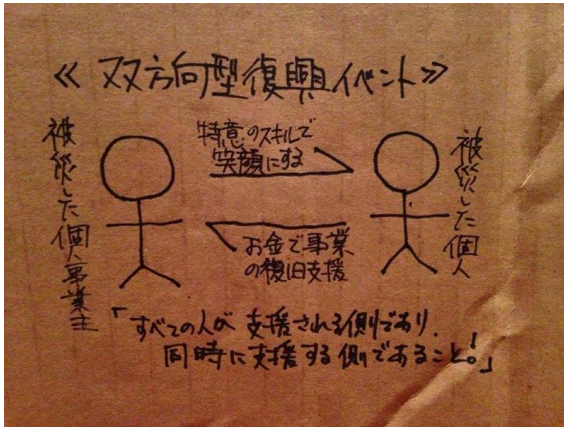 ≪双方向型復興イベント≫
被災した個人事業主
特意のスキルで
笑顔にする
被災した個人
お金で事業
の復旧支援
「すべての人が支援される側であり、
同時に支援する側であること!。」